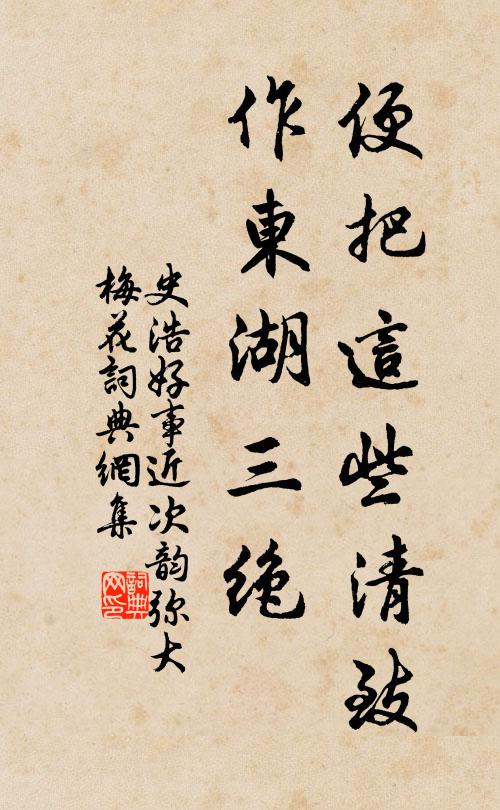 便把這些清致
作東湖三绝
史浩好事近次韵弥大
梅花詞典網集
詞典
网印